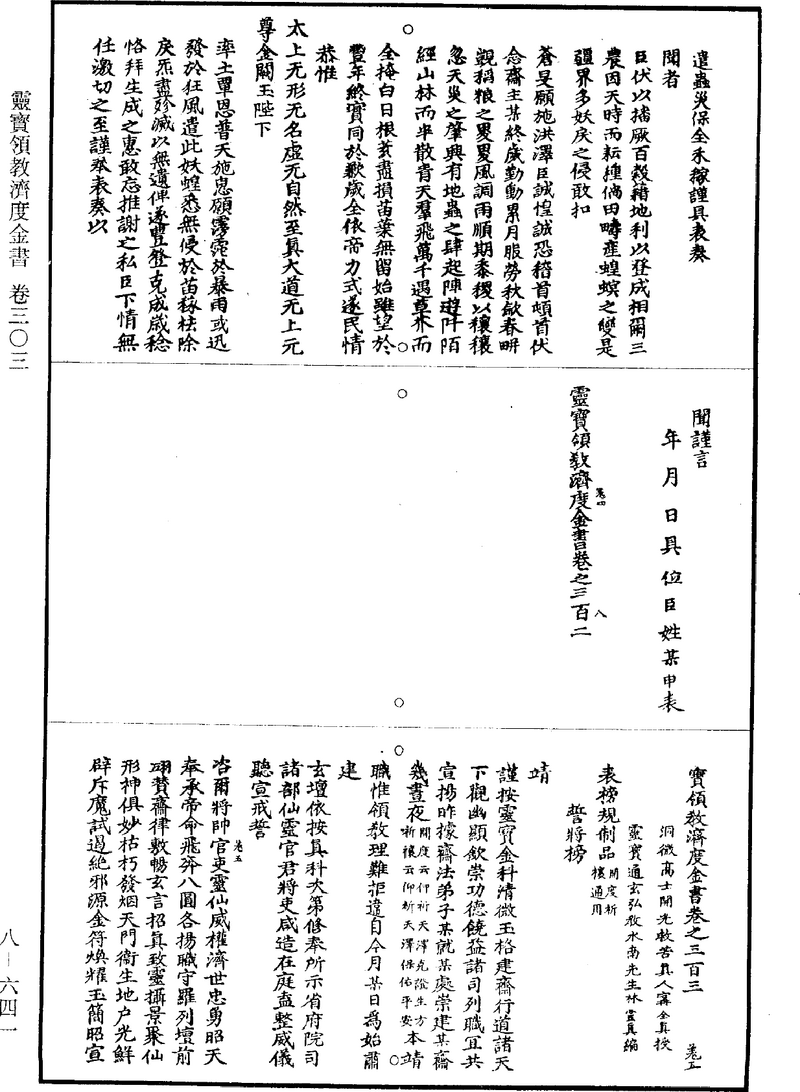 遣蟲災保全禾稼謹具表奏
聞者
臣伏以播厥百穀藉地利以登成相爾三
農因天時而耘種倘田疇產蝗螟之變是
疆界多妖戾之侵敢扣
蒼旻願施洪澤臣誠惶誠恐稽首頓首伏
念齋主某終歲勤動累月服勞秋斂春畊
覩稻粮之畟畟風調雨順期黍稷以穰穰
忽天災之肇興有地蟲之肆起陣遊阡陌
經山林而半散青天羣飛萬千遇草木而
全掩白日根荄盡損苗葉無留始雖望於
豐年終實同於歉歲全依帝力式遂民情
恭惟
太上无形无名虛无自然至真大道无上元
尊金闕玉陛下
率土單恩普天施惠願霶霈於暴雨或迅
發於狂風遣此妖蝗悉無侵於苗稼袪除
戾炁盡殄滅以無遺俾遂豐登克成歲稔
恪拜生成之惠敢忘推謝之私臣下情無
任激切之至謹奉表奏以
聞謹言
年月日具位臣姓某申表
靈寶領教濟度金書卷之三百二
卷四
八
寶領教濟度金書卷之三百三
卷五
洞微高士開光救苦真人甯全真授
靈寶通玄弘教水南先生林靈真編
表榜規制品 開度祈禳通用
誓將榜
靖
謹按靈寶金科清微玉格建齋行道諸天
下觀幽顯欽崇功德饒益諸司列職宜共
宣揚昨據齋法弟子某就某處崇建某齋
幾晝夜 開度云仰祈天澤克證生方 祈禳云仰祈天澤保佑平安 本靖
職惟領教理難詎違自今月某日為始肅
建
玄壇依按具科次第修奉所示省府院司
諸部仙靈官君將吏咸造在庭盍整威儀
聽宣戒誓
卷五
咨爾將帥官吏靈仙威權濟世忠勇昭天
奉承帝命飛莽八圓各揚職守羅列壇前
翊贊齋律敷暢玄言招真致靈攝景聚仙
形神俱妙枯朽發烟天門衞生地户光鮮
辟斥魔試遏絕邪源金符煥耀玉簡昭宣
靈寶領教濟度金書 卷三〇三
八－六四一